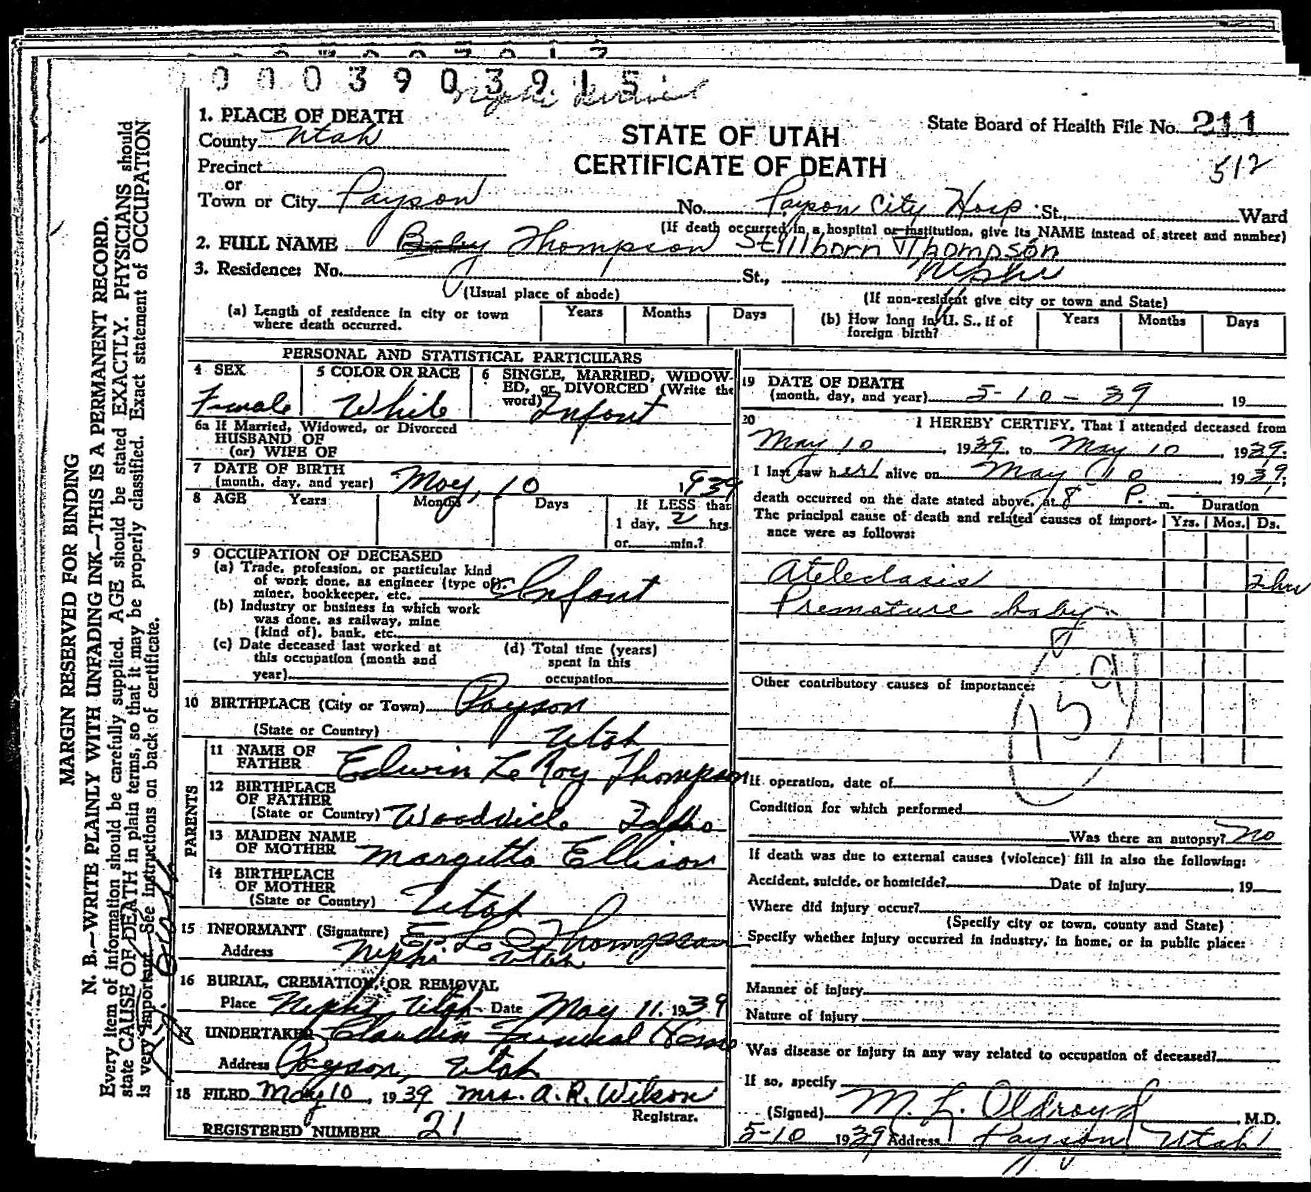 0 0 0 0 3 9 0 3 9 1 5
Nephi
1. PLACE OF DEATH
County Utah
Precinct
or
Town or City Payson
STATE OF UTAH
CERTIFICATE OF DEATH
State Board of Health File No. 211
512
No. Payson City Hosp St., Ward
(If death occurred in a hospital or institution, give its NAME instead of street and number)
2. FULL NAME Baby Thompson Stillborn Thompson
3. Residence: No. St., Nephi
(Usual place of abode) (If non-resident give city or town and State)
(a) Length of residence in city or town where death occurred. Years Months Days
(b) How long in U. S., if of foreign birth? Years Months Days
PERSONAL AND STATISTICAL PARTICULARS
4 SEX Female
5 COLOR OR RACE White
6 SINGLE, MARRIED, WIDOWED, or DIVORCED (Write the word) Infant
6a If Married, Widowed, or Divorced
HUSBAND OF
(or) WIFE OF
7 DATE OF BIRTH
(month, day, and year) May, 10 1939
8 AGE Years Months Days If LESS than
1 day, 2 hrs.
or min.?
9 OCCUPATION OF DECEASED
(a) Trade, profession, or particular kind
of work done, as engineer (type of),
miner, bookkeeper, etc. Infant
(b) Industry or business in which work
was done, as railway, mine
(kind of), bank, etc.
(c) Date deceased last worked at
this occupation (month and
year)
(d) Total time (years)
spent in this
occupation
10 BIRTHPLACE (City or Town) Payson
(State or Country) Utah
PARENTS
11 NAME OF
FATHER Edwin Le Roy Thompson
12 BIRTHPLACE
OF FATHER
(State or Country) Woodville Idaho
13 MAIDEN NAME
OF MOTHER Margetta Ellison
14 BIRTHPLACE
OF MOTHER
(State or Country) Utah
15 INFORMANT (Signature) E. L. Thompson
Address Nephi Utah
16 BURIAL, CREMATION, OR REMOVAL
Place Nephi, Utah Date May 11. 1939
17 UNDERTAKER Funeral Home
Address Payson, Utah
18 FILED May 10, 1939 Mrs. A. R. Wilson
Registrar.
REGISTERED NUMBER 21
19 DATE OF DEATH
(month, day, and year) 5-10-39 19
20 I HEREBY CERTIFY, That I attended deceased from
May 10, 1939, to May 10, 1939.
I last saw her alive on May 10 1939;
death occurred on the date stated above, at 8 P. m.
The principal cause of death and related causes of importance were as follows: Duration
Yrs. Mos. Ds.
Atelectasis 2 hrs
Premature baby
159
Other contributory causes of importance:
If operation, date of
Condition for which performed
Was there an autopsy? No
If death was due to external causes (violence) fill in also the following:
Accident, suicide, or homicide? Date of injury , 19
Where did injury occur?
(Specify city or town, county and State)
Specify whether injury occurred in industry, in home, or in public place:
Manner of injury
Nature of injury
Was disease or injury in any way related to occupation of deceased?
If so, specify
(Signed) M. L. Oldroyd M.D.
5-10 1939 Address Payson, Utah
MARGIN RESERVED FOR BINDING
N. B.—WRITE PLAINLY WITH UNFADING INK—THIS IS A PERMANENT RECORD.
Every item of information should be carefully supplied. AGE should be stated EXACTLY. PHYSICIANS should
state CAUSE OF DEATH in plain terms, so that it may be properly classified. Exact statement of OCCUPATION
is very important. See instructions on back of certificate.